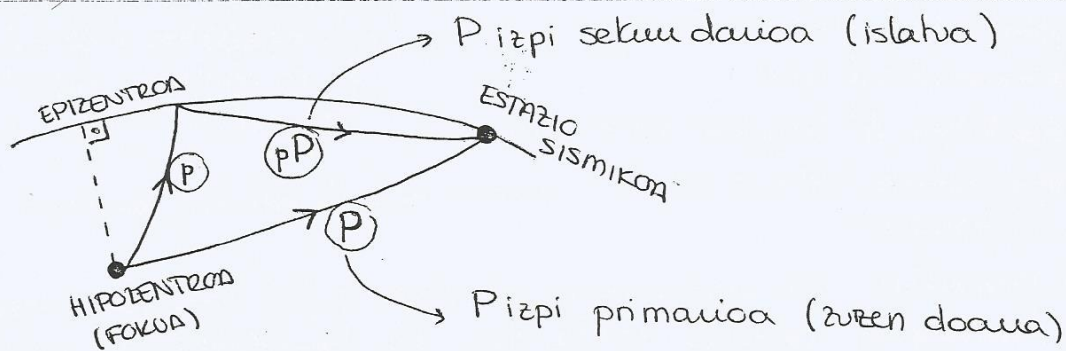 P izpi sekundarioa (islatua)
EPIZENTROA
ESTAZIO
SISMIKOA
p
pP
P
HIPOZENTROA
(FOKUA)
P izpi primarioa (zuzen doana)